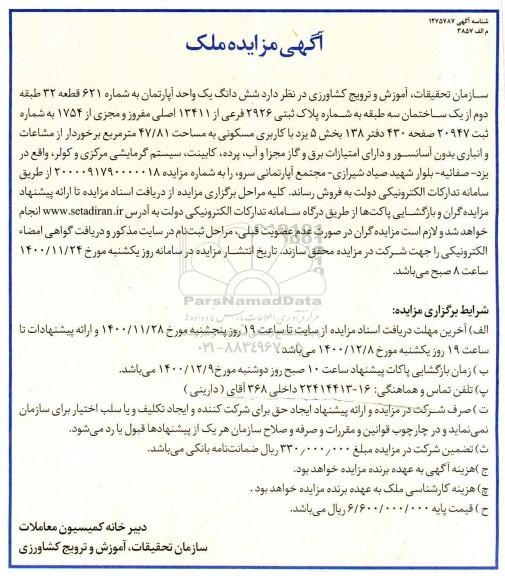 شناسه آگهی ۱۲۷۵۷۸۷
م الف ۳۸۵۷
آگهی مزایده ملک
سازمان تحقیقات، آموزش و ترویج کشاورزی در نظر دارد شش دانگ یک واحد آپارتمان به شماره ۶۲۱ قطعه ۳۲ طبقه
دوم از یک ساختمان سه طبقه به شماره پلاک ثبتی ۲۹۲۶ فرعی از ۱۳۴۱۱ اصلی مفروز و مجزی از ۱۷۵۴ به شماره
ثبت ۲۰۹۴۷ صفحه ۴۳۰ دفتر ۱۳۸ بخش ۵ یزد با کاربری مسکونی به مساحت ۴۷/۸۱ مترمربع برخوردار از مشاعات
و انباری بدون آسانسور و دارای امتیازات برق و گاز مجزا و آب، پرده، کابینت، سیستم گرمایشی مرکزی و کولر، واقع در
یزد- صفائیه- بلوار شهید صیاد شیرازی- مجتمع آپارتمانی سرو، را به شماره مزایده ۲۰۰۰۰۹۱۷۹۰۰۰۰۱۸ از طریق
سامانه تدارکات الکترونیکی دولت به فروش رساند. کلیه مراحل برگزاری مزایده از دریافت اسناد مزایده تا ارائه پیشنهاد
مزایده گران و بازگشایی پاکت‌ها از طریق درگاه سامانه تدارکات الکترونیکی دولت به آدرس www.setadiran.ir انجام
خواهد شد و لازم است مزایده گران در صورت عدم عضویت قبلی، مراحل ثبت‌نام در سایت مذکور و دریافت گواهی امضاء
الکترونیکی را جهت شرکت در مزایده محقق سازند. تاریخ انتشار مزایده در سامانه روز یکشنبه مورخ ۱۴۰۰/۱۱/۲۴
ساعت ۸ صبح می‌باشد.
ParsNamadData
مرکز فرآوری اطلاعات پارس نماد داده ها
۰۲۱-۸۸۳۴۹۶۷۰-۵
شرایط برگزاری مزایده:
الف) آخرین مهلت دریافت اسناد مزایده از سایت تا ساعت ۱۹ روز پنجشنبه مورخ ۱۴۰۰/۱۱/۲۸ و ارائه پیشنهادات تا
ساعت ۱۹ روز یکشنبه مورخ ۱۴۰۰/۱۲/۸ می‌باشد.
ب) زمان بازگشایی پاکات پیشنهاد ساعت ۱۰ صبح روز دوشنبه مورخ ۱۴۰۰/۱۲/۹ می‌باشد.
پ) تلفن تماس و هماهنگی: ۱۶-۲۲۴۱۴۴۱۳ داخلی ۳۶۸ آقای ( دارینی )
ت) صرف شرکت در مزایده و ارائه پیشنهاد ایجاد حق برای شرکت کننده و ایجاد تکلیف و یا سلب اختیار برای سازمان
نمی‌نماید و در چارچوب قوانین و مقررات و صرفه و صلاح سازمان هر یک از پیشنهادها قبول یا رد می‌شود.
ث) تضمین شرکت در مزایده مبلغ ۳۳۰/۰۰۰/۰۰۰ ریال ضمانت‌نامه بانکی می‌باشد.
ج) هزینه آگهی به عهده برنده مزایده خواهد بود.
چ) هزینه کارشناسی ملک به عهده برنده مزایده خواهد بود .
ح ) قیمت پایه ۶/۶۰۰/۰۰۰/۰۰۰ ریال می‌باشد.
دبیر خانه کمیسیون معاملات
سازمان تحقیقات، آموزش و ترویج کشاورزی